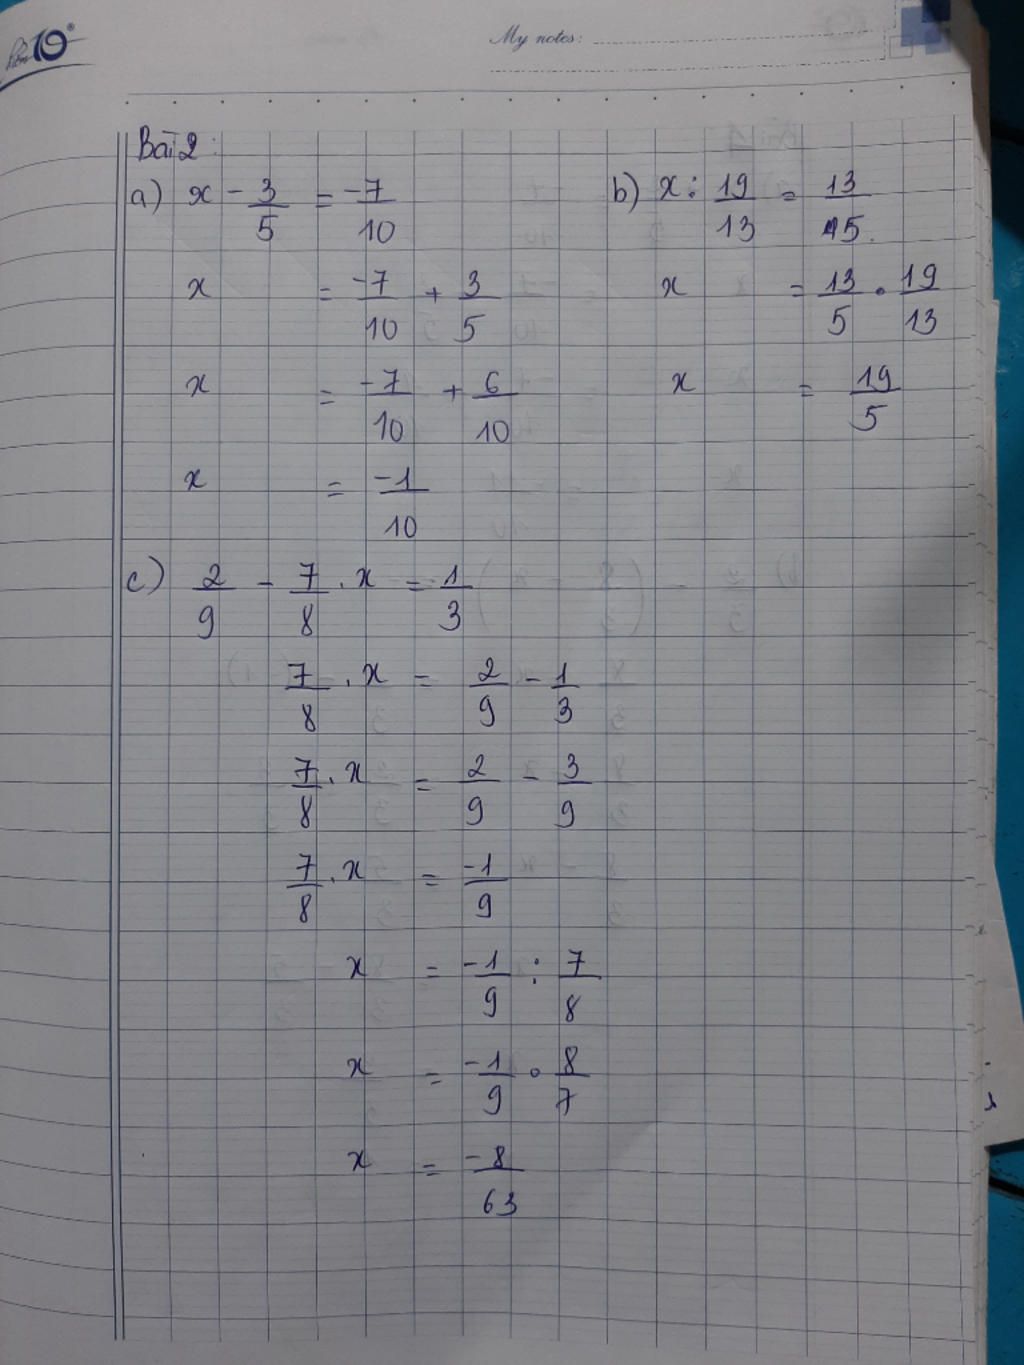 10
My notes:
Bài 2:
a) x - 3/5 = -7/10
x = -7/10 + 3/5
x = -7/10 + 6/10
x = -1/10
b) x : 19/13 = 13/15
x = 13/5 . 19/13
x = 19/5
c) 2/9 - 7/8 . x = 1/3
7/8 . x = 2/9 - 1/3
7/8 . x = 2/9 - 3/9
7/8 . x = -1/9
x = -1/9 : 7/8
x = -1/9 . 8/7
x = -8/63